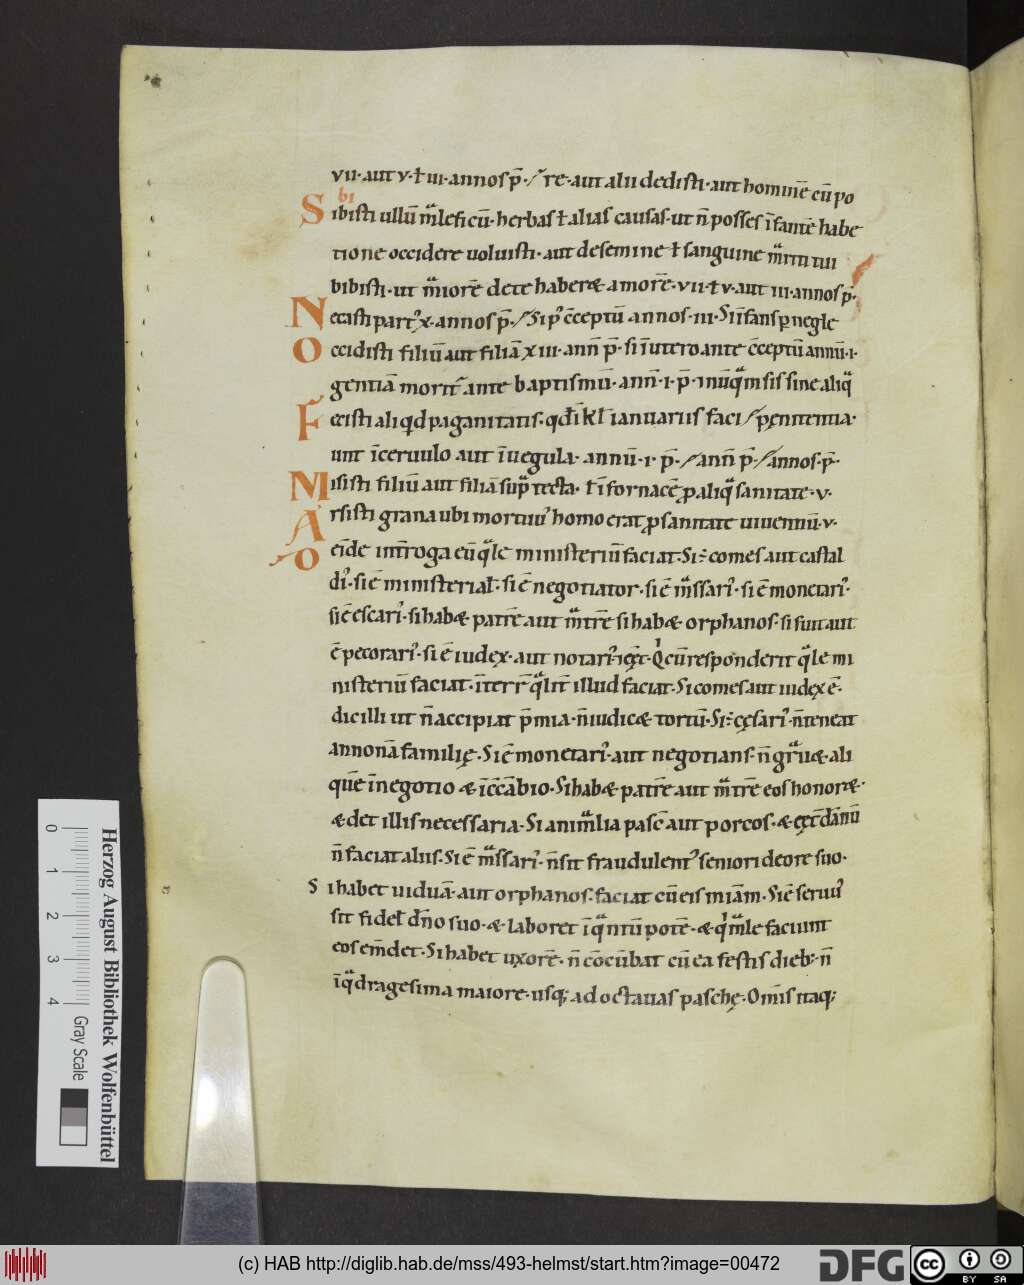 vii·aut v·ł iii·annos p̄·/re·aut alii dedisti·aut hominē cū po
bi
Sibisti ullū maleficū·herbas ł alias causas·ut n̄ posses īfantē habe
tione occidere uoluisti·aut desemine ł sanguine mariti tui
bibisti·ut maiorē dete haberæ amorē·vii·ł v·aut iii·annos p̄·
Necasti part᾽ x·annos p̄·/Si p᾽ c̄ceptū annos·iii·Si īfans p negle
Occidisti filiū aut filiā xiii·ann̄ p̄·si īutero ante c̄ceptū annū·i·
gentiā morit᾽ ante baptismū·ann̄·i·p̄·inuquam sis sine aliq
Fecisti aliqd paganitatis·qđ ī kl ianuariis faci/pęnitentia·
unt īceruulo aut īuegula·annū·i·p̄·/ann̄ p̄·/annos·p̄·
Misisti filiū aut filiā sup tecta·ł ī fornacē p aliq sanitate·v·
Arsisti grana ubi mortuu᾽ homo erat p sanitate uiuentiū·v·
Oeīde int̄roga eū q̄le ministeriū faciat·Si ē comes aut castal
di᾽·si ē ministerial̄·si ē negotiator·si ē massari᾽·si ē monetari᾽·
si ē escari᾽·si habæ patrē aut matrē si habæ orphanos·si sun̄t aut
ē pecorari᾽·si ē iudęx·aut notari᾽
cū responderit q̄le mi
nisteriū faciat·īterr̄ q̄lit̄ illud faciat·Si comes aut iudęx ē·
dic illi ut n̄ accipiat p̄mia·n̄ iudicæ tortū·Si ē cęsari᾽·n̄ teneat
annonā familię·Si ē monetari᾽·aut negotians·n̄ grauæ·ali
quē ī negotio æ ī c̄cābio·Si habæ patrē aut matrē eos honoræ·
æ det illis necessaria·Si animalia pasc̄ aut porcos·æ
dānū
n̄ faciat aliis·Si ē massari᾽·n̄ sit fraudulent᾽ seniori deore suo·
Si habet uiduā·aut orphanos·faciat cū eis in iām·Si ē seruu᾽
sit fidel̄ dn̄o suo·æ·laboret īquantū potē·æ·qi male faciunt
eos emd̄et·Si habet uxorē·n̄ cōcūbat cū ea festis dieb;·n̄
īquadragesima maiore·usq; ad octauas paschę·Om̄is itaq;
Herzog August Bibliothek Wolfenbüttel
0 1 2 3 4 Gray Scale
(c) HAB http://diglib.hab.de/mss/493-helmst/start.htm?image=00472
DFG
cc BY SA